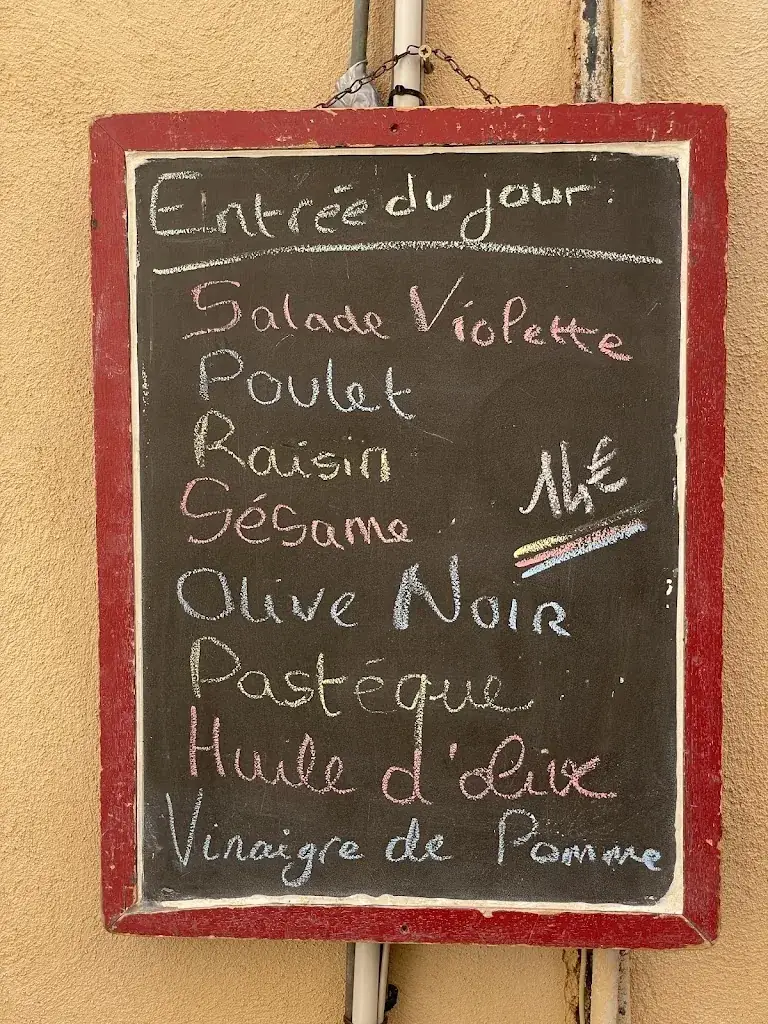 Entrée du jour.
Salade Violette
Poulet
Raisin
Sésame
14€
Olive Noir
Pastéque
Huile d'olive
Vinaigre de Pomme